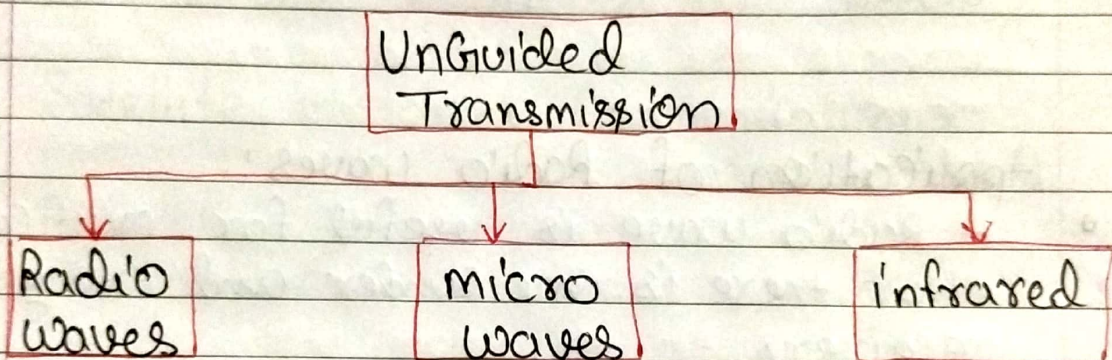 UnGuided
Transmission
Radio waves
micro waves
infrared